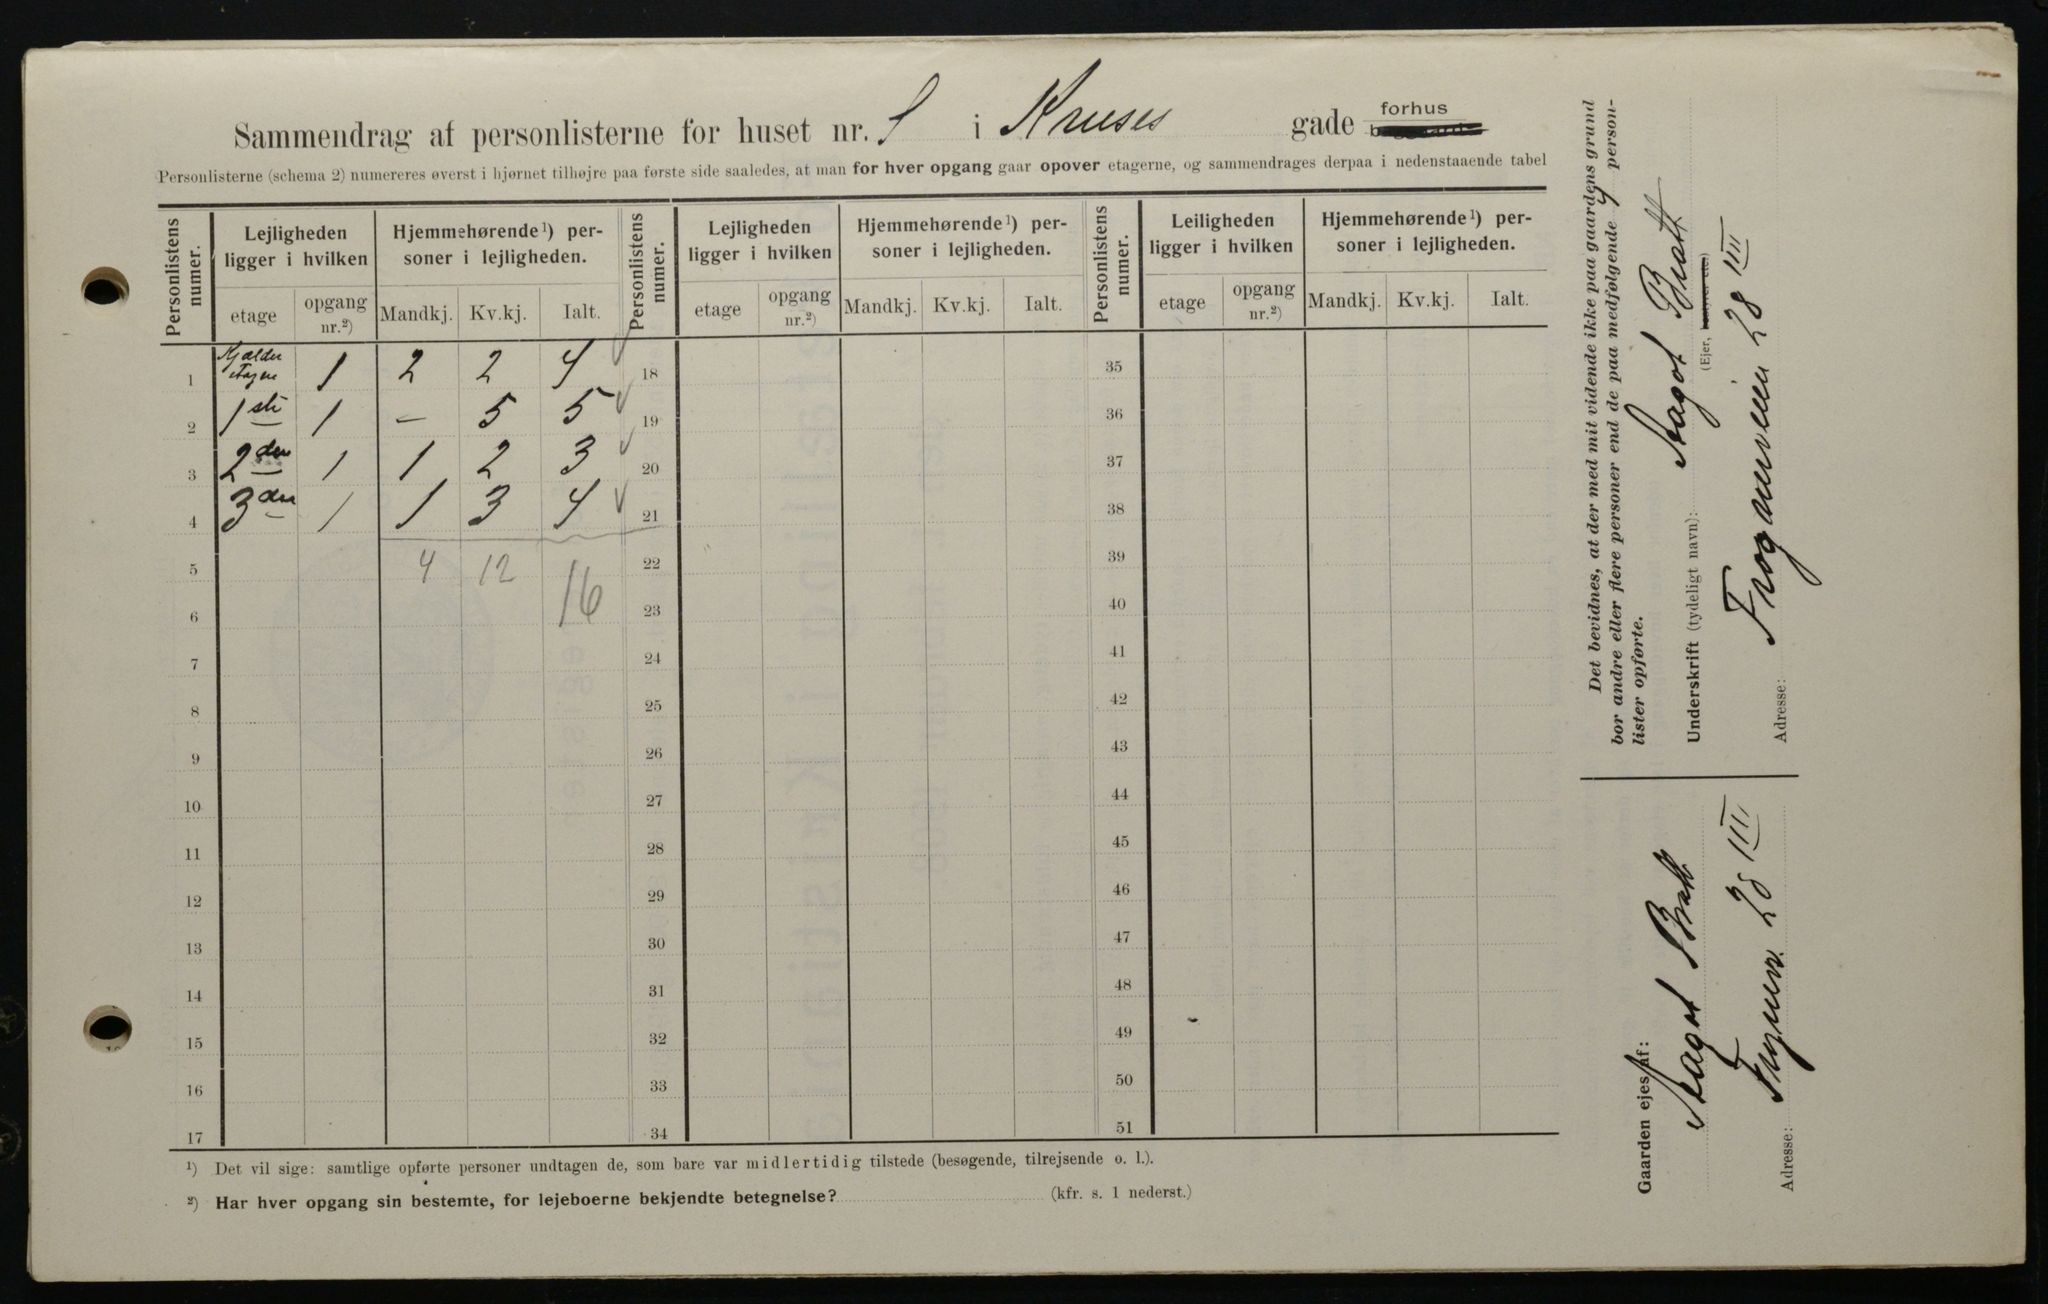 Sammendrag af personlisterne for huset nr. i Kruses gade forhus
Personlisterne (schema 2) numereres øverst i hjørnet tilhøjre paa første side saaledes, at man for hver opgang gaar opover etagerne, og sammendrages derpaa i nedenstaaende tabel
Personlistens numer. Lejligheden ligger i hvilken Hjemmehørende ¹) personer i lejligheden. Personlistens numer. Lejligheden ligger i hvilken Hjemmehørende ¹) personer i lejligheden. Personlistens numer. Leiligheden ligger i hvilken Hjemmehørende ¹) personer i lejligheden.
etage opgang nr.²) Mandkj. Kv.kj. Ialt. etage opgang nr.²) Mandkj. Kv.kj. Ialt. etage opgang nr.²) Mandkj. Kv.kj. Ialt.
1 Kjælder etagen 1 2 2 4 18 35
2 1ste 1 – 5 5 19 36
3 2den 1 1 2 3 20 37
4 3den 1 1 3 4 21 38
5 4 12 16 22 39
6 23 40
7 24 41
8 25 42
9 26 43
10 27 44
11 28 45
12 29 46
13 30 47
14 31 48
15 32 49
16 33 50
17 34 51
¹) Det vil sige: samtlige opførte personer undtagen de, som bare var midlertidig tilstede (besøgende, tilrejsende o. l.).
²) Har hver opgang sin bestemte, for lejeboerne bekjendte betegnelse? (kfr. s. 1 nederst.)
Det bevidnes, at der med mit vidende ikke paa gaardens grund
bor andre eller flere personer end de paa medfølgende 4 person-
lister opførte.
Underskrift (tydeligt navn): Aagot Bratt
(Ejer, bestyrer etc.)
Adresse: Frognerveien 28 III
Gaarden ejes af:
Aagot Bratt
Adresse: Frognerv. 28 III